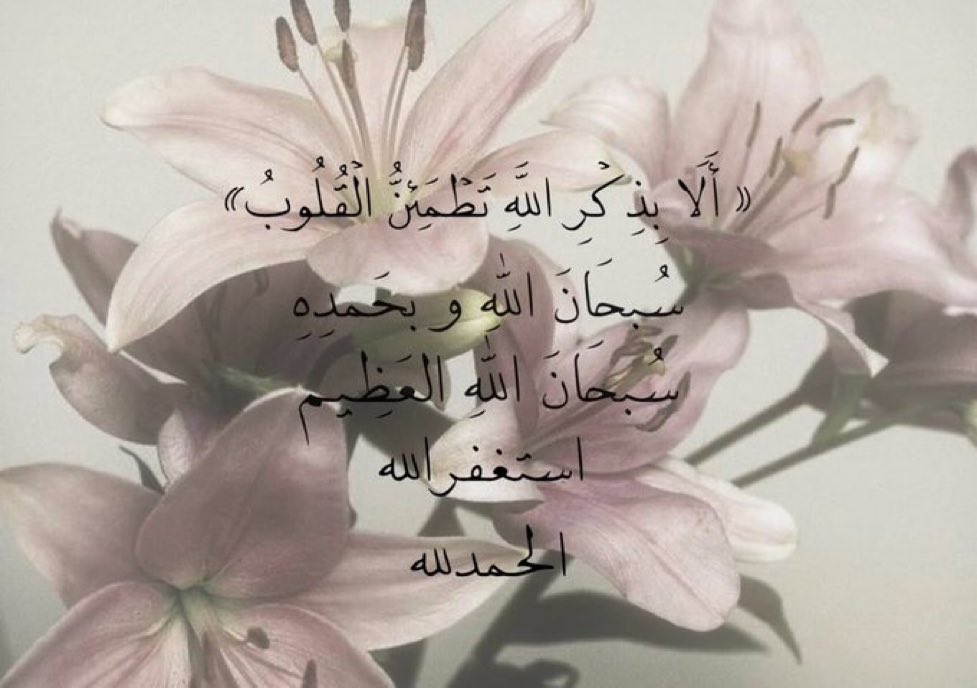 « أَلَا بِذِكْرِ اللَّهِ تَطْمَئِنُّ الْقُلُوبُ »
سُبحَانَ اللّٰهِ و بِحَمدِهِ
سُبحَانَ اللّٰهِ العَظِيم
استغفرالله
الحمدلله